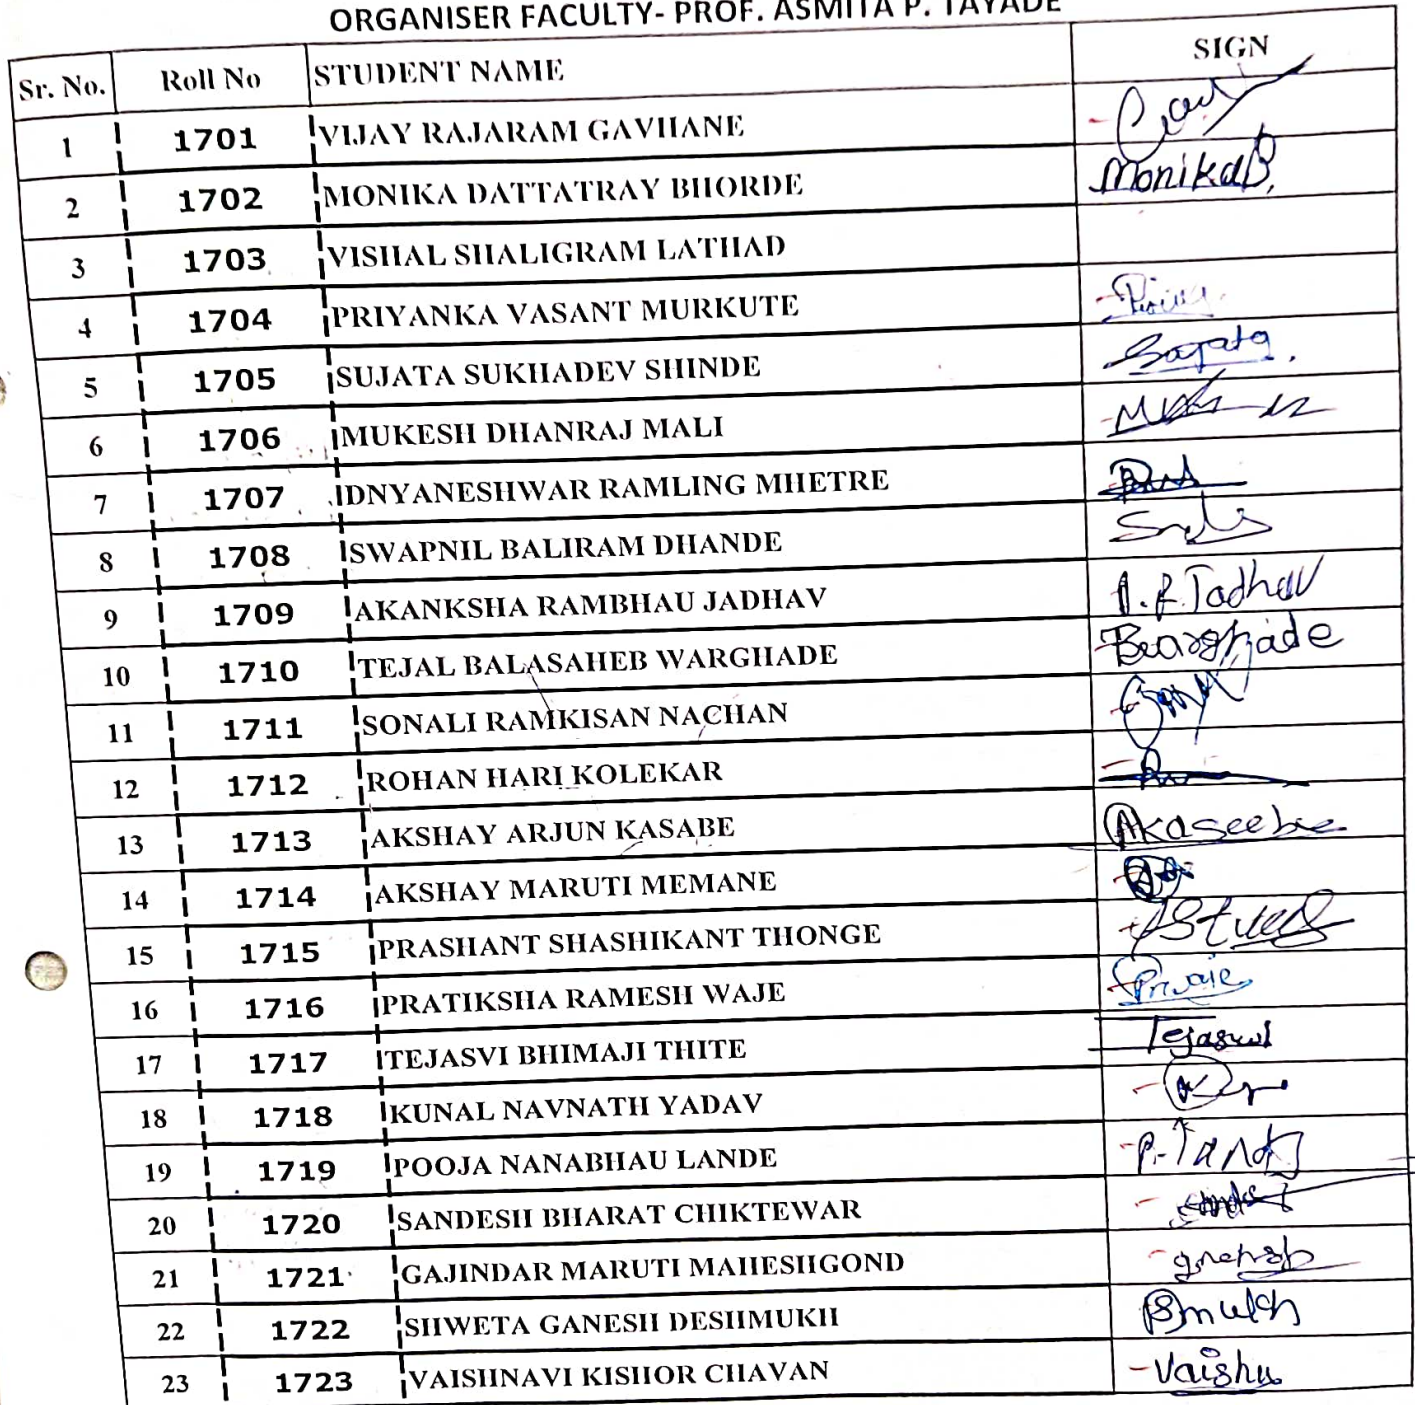 ORGANISER FACULTY- PROF. ASMITA P. TAYADE
Sr. No. Roll No STUDENT NAME SIGN
1 1701 VIJAY RAJARAM GAVHANE
2 1702 MONIKA DATTATRAY BHORDE MonikaB.
3 1703 VISHAL SHALIGRAM LATHAD
4 1704 PRIYANKA VASANT MURKUTE
5 1705 SUJATA SUKHADEV SHINDE
6 1706 MUKESH DHANRAJ MALI
7 1707 DNYANESHWAR RAMLING MHETRE
8 1708 SWAPNIL BALIRAM DHANDE
9 1709 AKANKSHA RAMBHAU JADHAV
10 1710 TEJAL BALASAHEB WARGHADE
11 1711 SONALI RAMKISAN NACHAN
12 1712 ROHAN HARI KOLEKAR
13 1713 AKSHAY ARJUN KASABE
14 1714 AKSHAY MARUTI MEMANE
15 1715 PRASHANT SHASHIKANT THONGE
16 1716 PRATIKSHA RAMESH WAJE
17 1717 TEJASVI BHIMAJI THITE
18 1718 KUNAL NAVNATH YADAV
19 1719 POOJA NANABHAU LANDE
20 1720 SANDESH BHARAT CHIKTEWAR
21 1721 GAJINDAR MARUTI MAHESHGOND
22 1722 SHWETA GANESH DESHMUKH
23 1723 VAISHNAVI KISHOR CHAVAN Vaishu